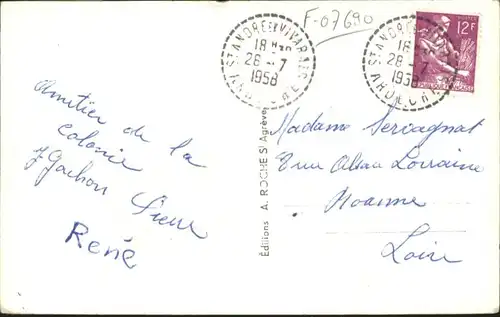 F-07690
ST ANDRE EN VIVARAIS
18 H 30
28 - 7
1958
ARDECHE
POSTES
12F
REPUBLIQUE FRANÇAISE
ST ANDRE
18
28 - 7
1958
ARDECHE
Amitiés de la
Colonie
René
Editions A. ROCHE St Agrève
Madame Servagnat
8 rue Alsace Lorraine
Roanne
Loire